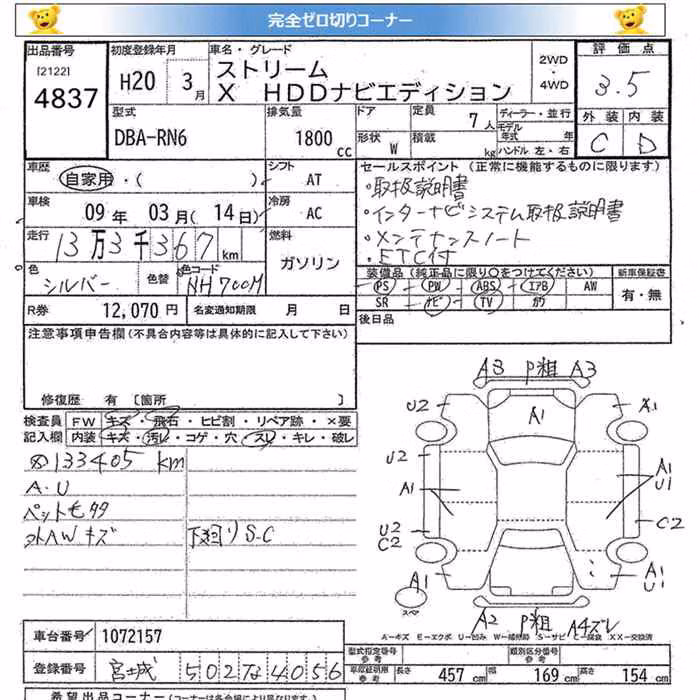 完全ゼロ切りコーナー
出品番号 初度登録年月 車名・グレード 2WD・4WD 評価点
[2122] 4837 H20 3月 ストリーム
X HDDナビエディション 3.5
型式 排気量 ドア 定員 7人 ディーラー・並行 外装 内装
DBA-RN6 1800cc 形状 W 積載 kg モデル年式 年 C D
ハンドル 左・右
車歴 シフト セールスポイント (正常に機能するものに限ります)
自家用・( ) AT ・取扱説明書
車検 冷房 ・インターナビシステム取扱説明書
09年 03月(14日) AC ・メンテナンスノート
走行 燃料 ・ETC付
13万3千367km ガソリン
色 色替 色コード 装備品(純正品に限り○をつけてください) 新車保証書
シルバー NH700M PS PW ABS エアB AW 有・無
R券 12,070円 名変通知期限 月 日 SR ナビ TV カワ
注意事項申告欄(不具合内容等は具体的に記入して下さい) 後日品
修復歴 有 [箇所 ]
検査員記入欄 FW キズ・飛石・ヒビ割・リペア跡・×要
内装 キズ・汚レ・コゲ・穴・スレ・キレ・破レ
133405km
A.U
ペット毛タタ
外AWキズ 下廻りS.C
A3 P粗 A3
U2 A1 A1
U2 A1 U1
A1
U2 C2
C2
A1 A1 U1
スペア
A2 P粗 A4ズレ
A-キズ E-エクボ U-凹み W-補修跡 S-サビ C-腐蝕 XX-交換済
車台番号 1072157 型式指定番号 参考 類別区分番号 参考
登録番号 宮城 502な4056 車庫証明用参考 長さ 457cm 幅 169cm 高さ 154cm
希望出品コーナー